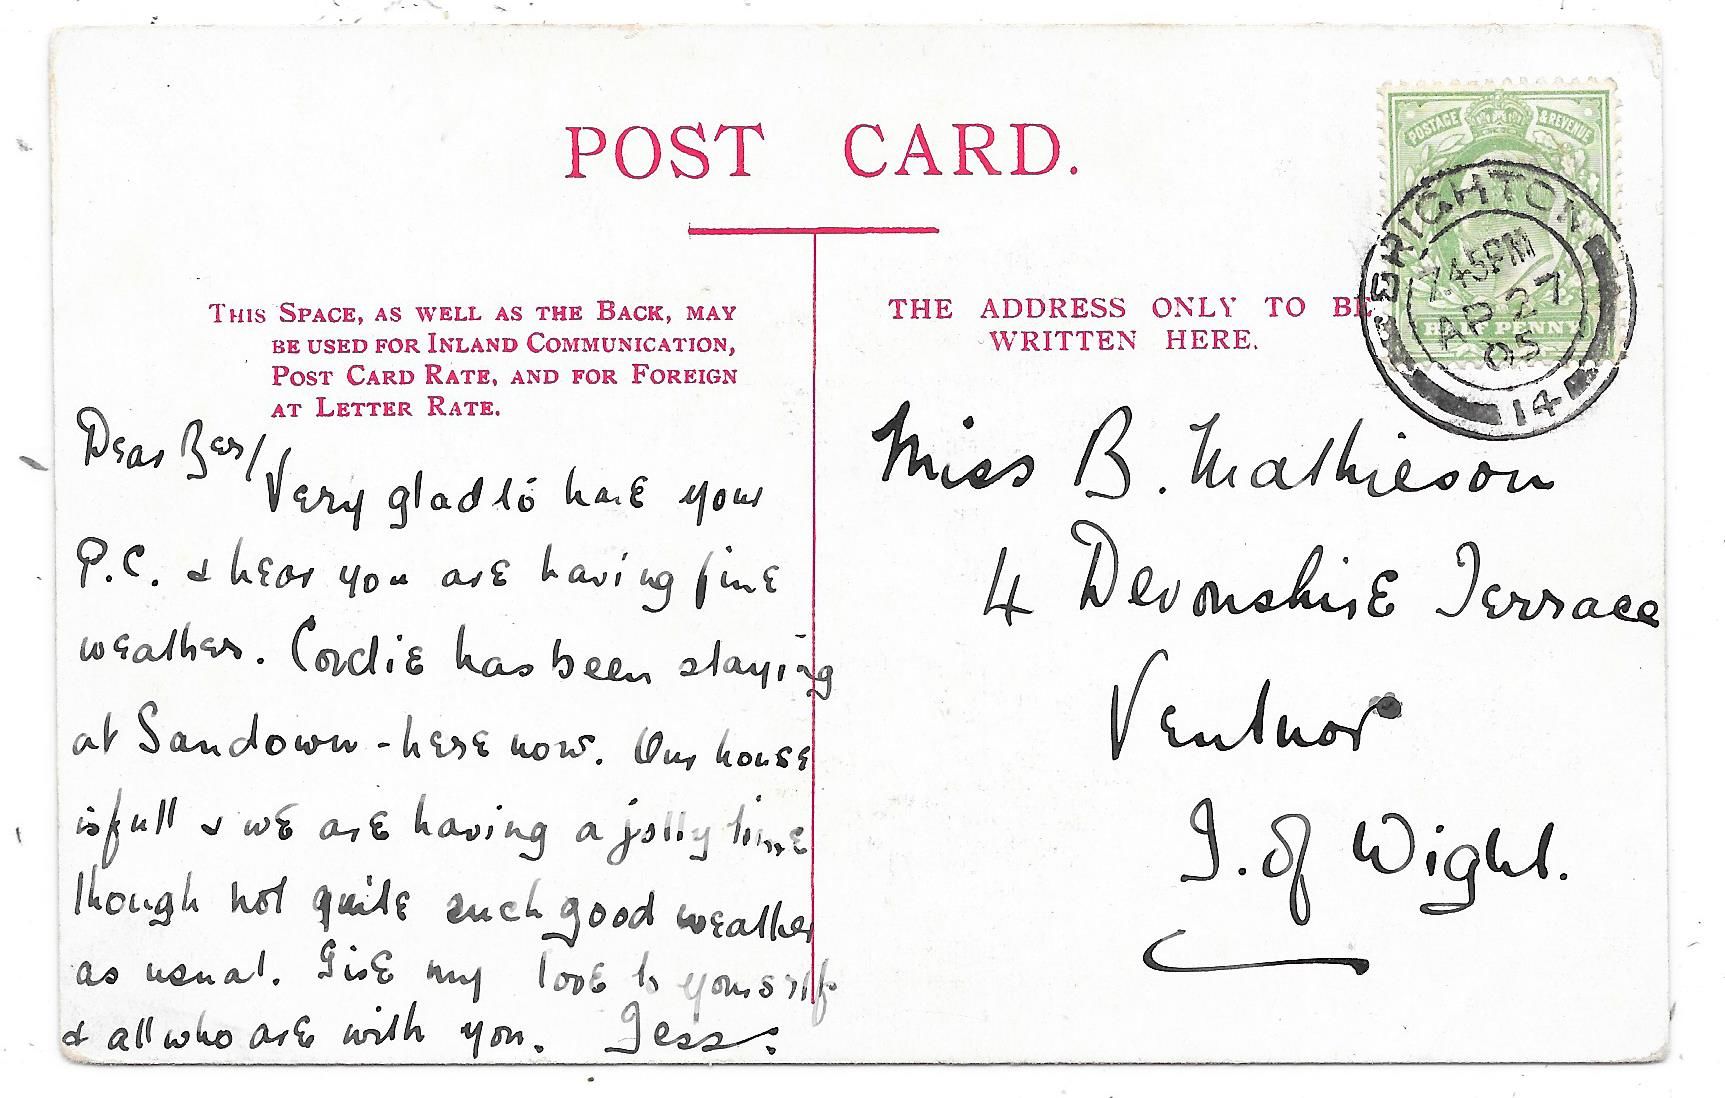 POST CARD.
THIS SPACE, AS WELL AS THE BACK, MAY
BE USED FOR INLAND COMMUNICATION,
POST CARD RATE, AND FOR FOREIGN
AT LETTER RATE.
Dear Ber/
Very glad to have your
P.C. & hear you are having fine
weather. Cordie has been staying
at Sandown - here now. Our house
is full & we are having a jolly time
though not quite such good weather
as usual. Give my love to yourself
& all who are with you. Jess.
THE ADDRESS ONLY TO BE
WRITTEN HERE.
Miss B. Mathieson
4 Devonshire Terrace
Ventnor
I. of Wight.
POSTAGE & REVENUE
HALF PENNY
BRIGHTON
7.45PM
AP 27
05
14